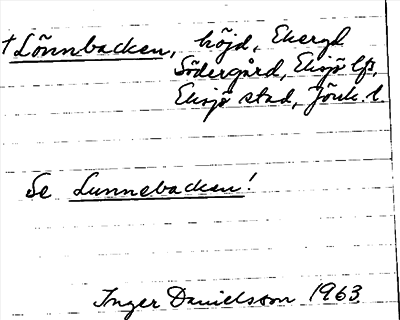 † Lönnbacken, höjd, Ekeryd
Södergård, Eksjö lfs,
Eksjö stad, Jönk. l.
Se Lunnebacken!
Inger Danielsson 1963